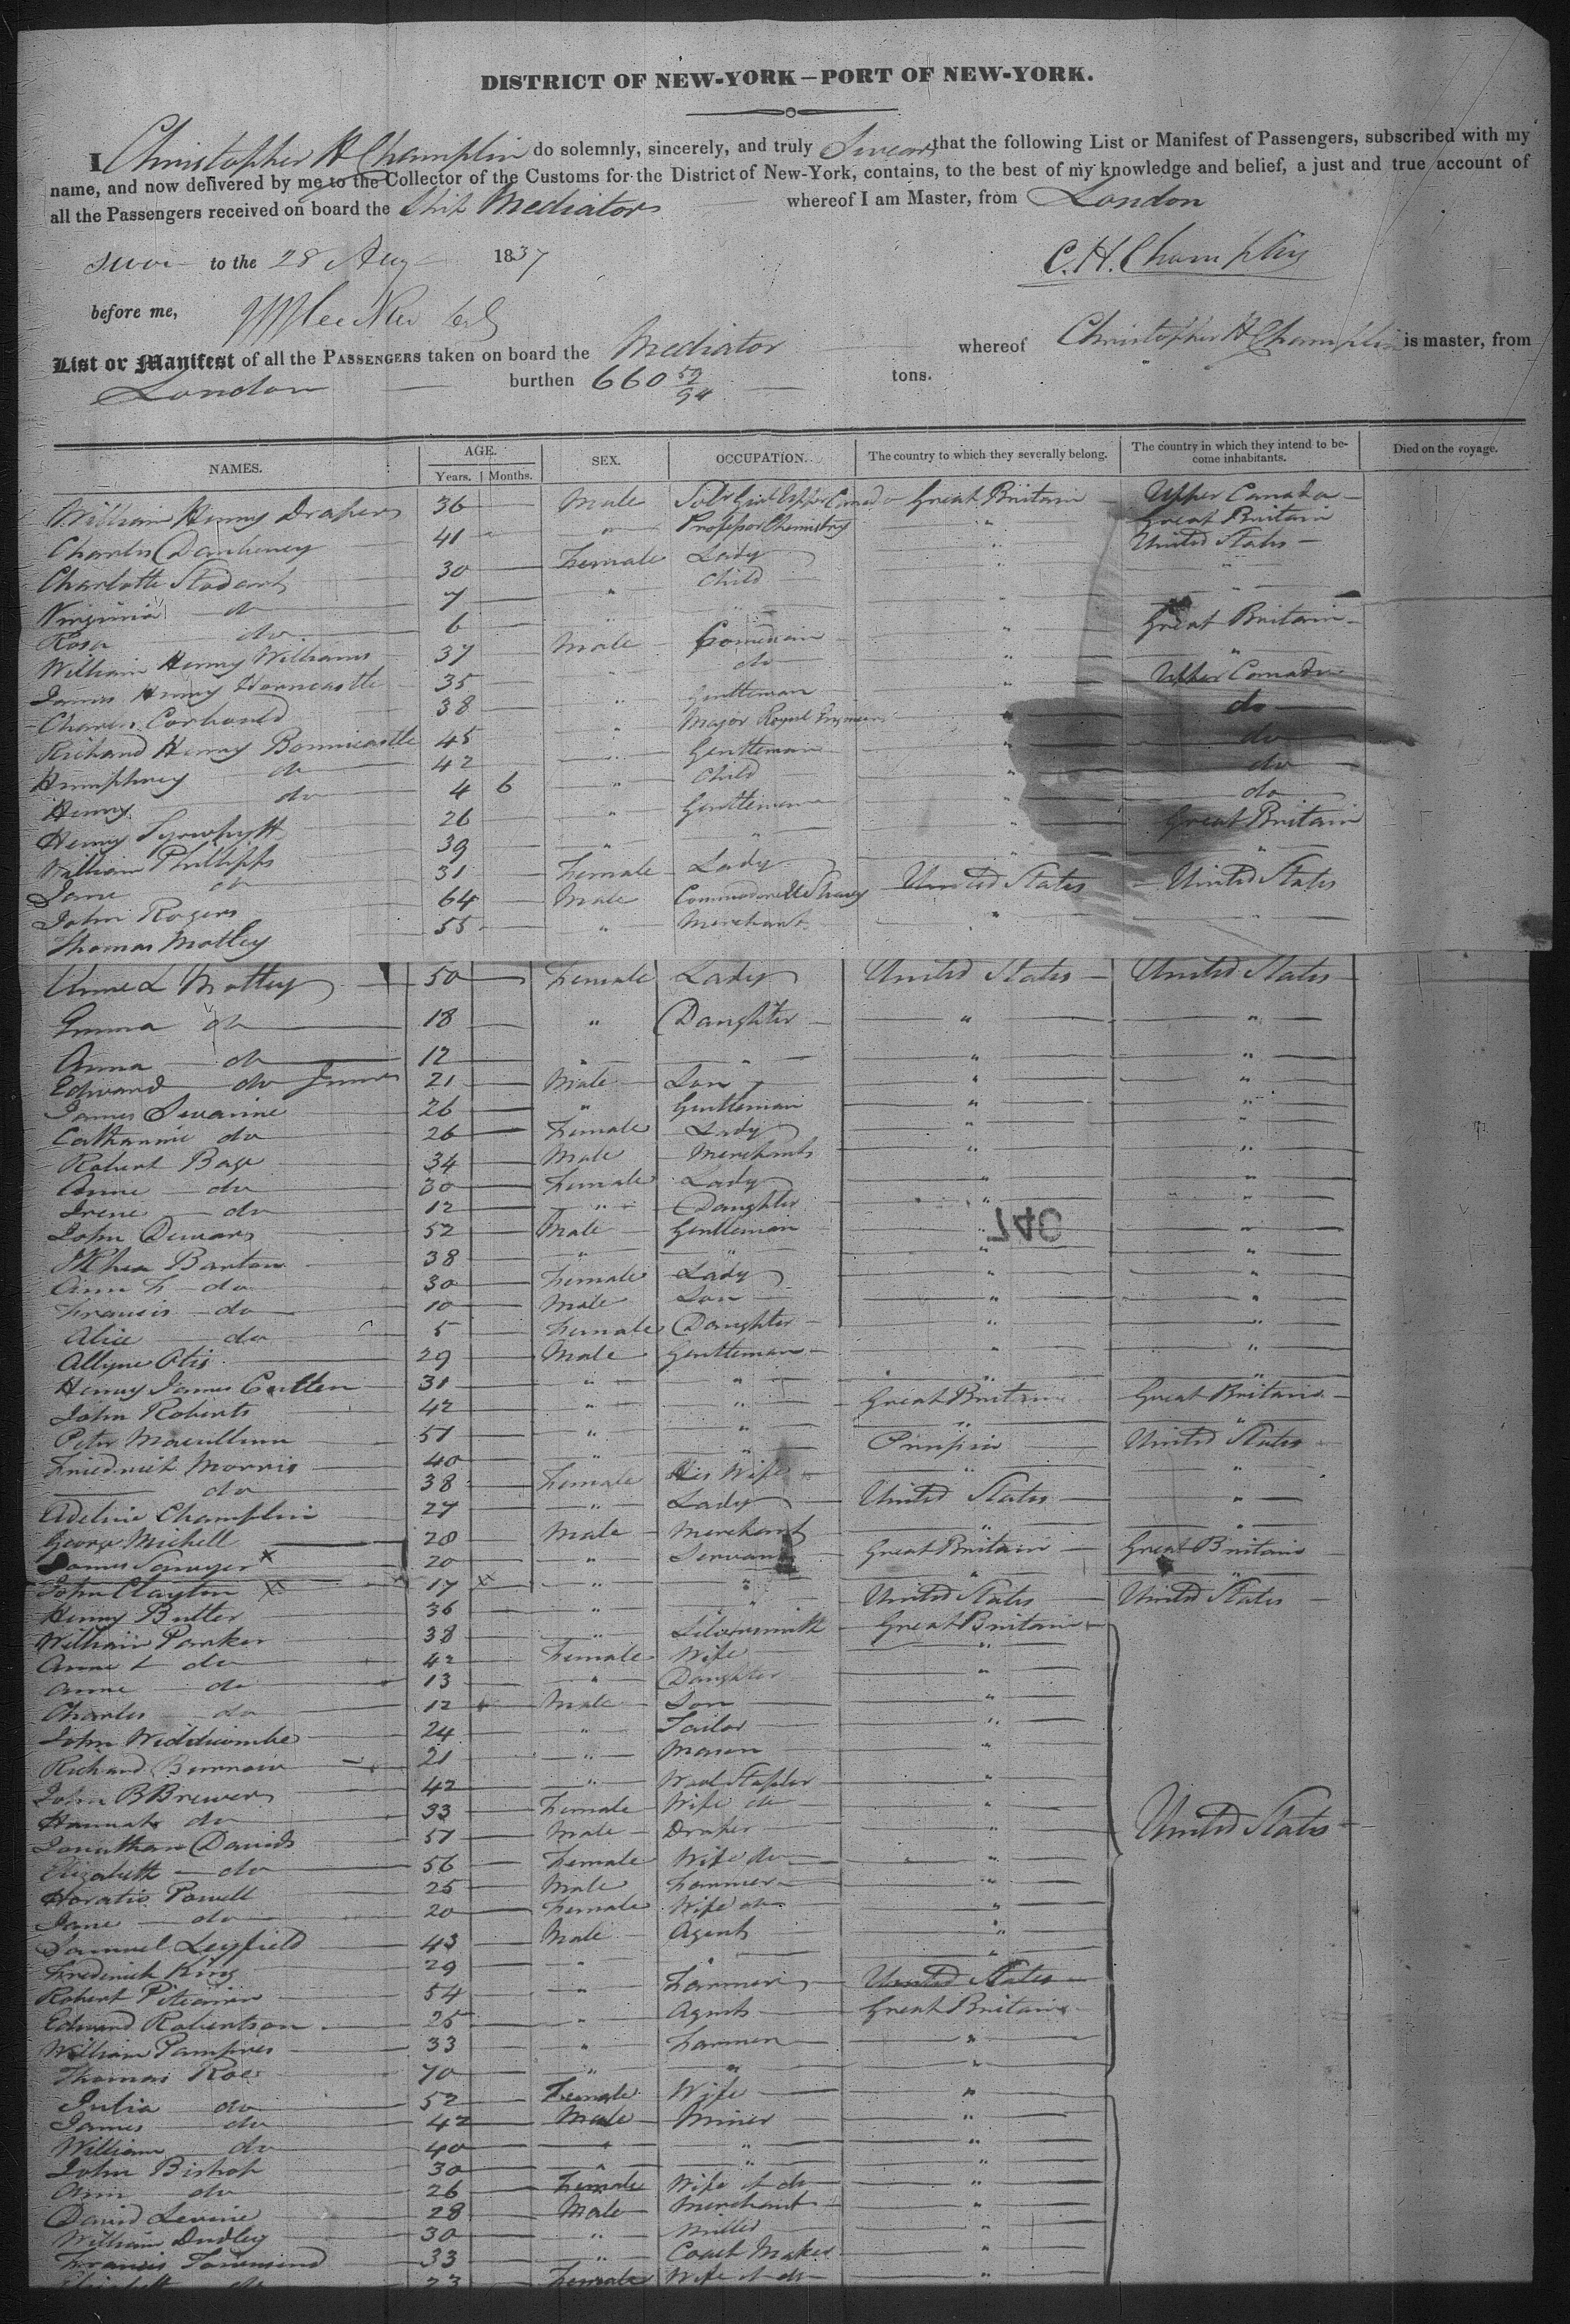 DISTRICT OF NEW-YORK—PORT OF NEW-YORK.
I Christopher H Champlin do solemnly, sincerely, and truly Swear that the following List or Manifest of Passengers, subscribed with my
name, and now delivered by me to the Collector of the Customs for the District of New-York, contains, to the best of my knowledge and belief, a just and true account of
all the Passengers received on board the Ship Mediator whereof I am Master, from London
to the 28 Aug 1837 C. H. Champlin
before me,
List or Manifest of all the PASSENGERS taken on board the Mediator whereof Christopher H Champlin is master, from
London burthen 660 52/94 tons.
NAMES. AGE. Years. Months. SEX. OCCUPATION. The country to which they severally belong. The country in which they intend to become inhabitants. Died on the voyage.
William Henry Draper 36 Male Upper Canada Great Britain Upper Canada
Charles Daubeney 41 " Professor Chemistry " Great Britain
Charlotte 30 Female Lady " United States
Virginia do 7 " Child " "
Rosa do 6 " " " "
William Henry Williams 37 Male Comedian " Great Britain
James Henry Horncastle 35 " do " "
Charles Corbould 38 " Gentleman " Upper Canada
Richard Henry Bonnicastle 45 " Major Royal Engineers " do
Humphrey do 42 " Gentleman " do
Henry do 4 6 " Child " do
Henry 26 " Gentleman " do
William Phillipps 39 " " " Great Britain
Jane do 31 Female Lady " "
John Rogers 64 Male Commodore United States United States
Thomas Motley 55 " Merchant " "
Anne L Motley 50 Female Lady United States United States
Emma do 18 " Daughter " "
Anna do 12 " " " "
Edward do Junr 21 Male Son " "
James 26 " Gentleman " "
Catharine do 26 Female Lady " "
Robert Bage 34 Male Merchant " "
Anne do 30 Female Lady " "
Irene do 12 " Daughter " "
John 52 Male Gentleman " "
740
Barton 38 " " " "
Ann do 30 Female Lady " "
Francis do 10 Male Son " "
Alice do 5 Female Daughter " "
Allyne Otis 29 Male Gentleman " "
Henry James 31 " " " "
John Roberts 42 " " Great Britain Great Britain
Peter 51 " " " "
Friedrich Morris 40 " " Prussia United States
do 38 Female His Wife " "
Adeline Champlin 27 " Lady United States "
George Michell 28 Male Merchant " "
James 20 " Servant Great Britain Great Britain
John Clayton 17 " " " "
Henry Butler 36 " " United States United States
William Parker 38 " Silversmith Great Britain
Anne do 42 Female Wife "
Anne do 13 " Daughter "
Charles do 12 Male Son "
John Widdicombe 24 " Tailor "
Richard 21 " Mason "
John B Brewer 42 " Wool Stapler "
Hannah do 33 Female Wife do "
Jonathan Davids 51 Male Draper " United States
Elizabeth do 56 Female Wife do "
Horatio Powell 25 Male Farmer "
Jane do 20 Female Wife do "
Samuel Leyfield 43 Male Agent "
Frederick King 29 " " "
Robert 54 " Farmer United States
Edward Robertson 25 " Agent Great Britain
William 33 " Farmer "
Thomas Roe 70 " " "
Julia do 52 Female Wife "
James do 42 Male Miner "
William do 40 " " "
John Bishop 30 " " "
Ann do 26 Female Wife of do "
David Levine 28 Male Merchant "
William Dudley 30 " Miller "
Francis Townsend 33 " Coach Maker "
Elizabeth do 23 Female Wife of do "